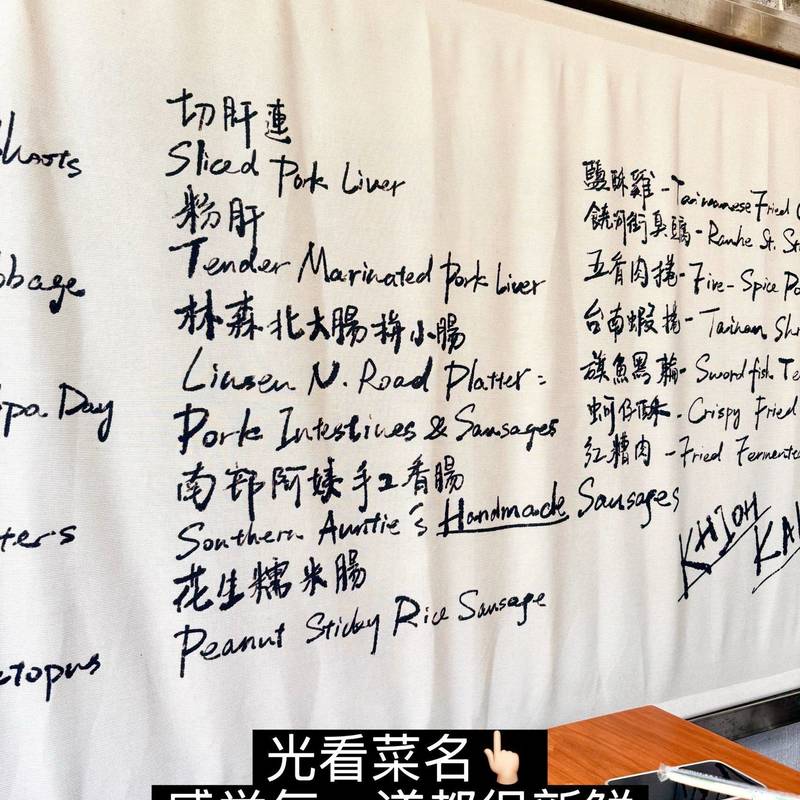 切肝連
Sliced Pork Liver
粉肝
Tender Marinated Pork Liver
林森北大腸拚小腸
Linsen N. Road Platter:
Pork Intestines & Sausages
南部阿姨手工香腸
Southern Auntie's Handmade Sausages
花生糯米腸
Peanut Sticky Rice Sausage
鹽酥雞 - Taiwanese Fried
饒河街臭豆腐 - Raohe St.
五香肉捲 - Five-Spice
台南蝦捲 - Tainan
旗魚黑輪 - Swordfish
蚵仔酥 - Crispy Fried
紅糟肉 - Fried Fermented
KHIOH
光看菜名👆🏻
感覺每一道都很新鮮